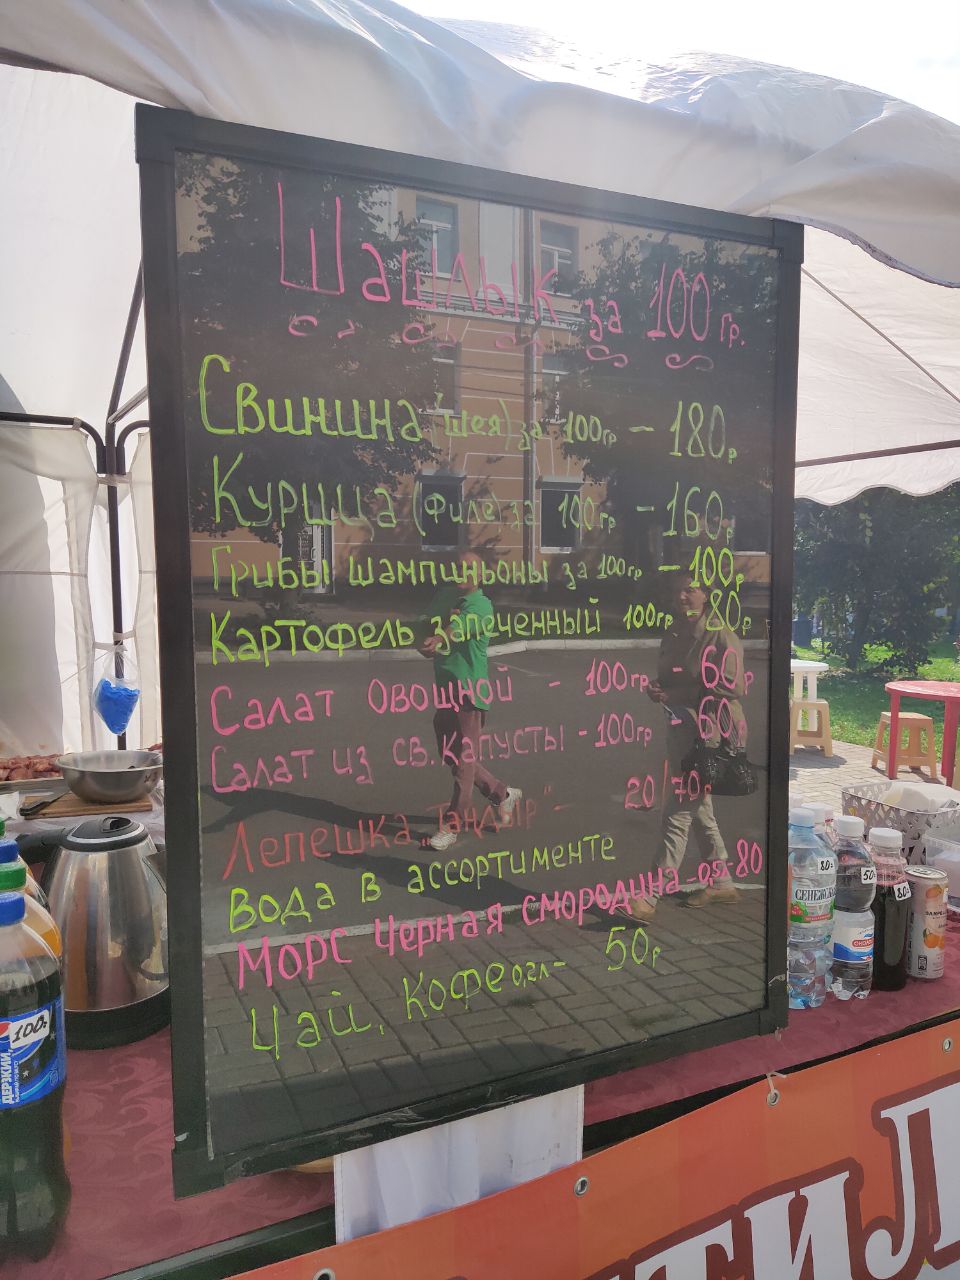 Шашлык за 100 гр.
Свинина (шея) за 100гр - 180р
Курица (филе) за 100гр - 160р
Грибы шампиньоны за 100гр - 100р
Картофель запеченный 100гр - 80р
Салат Овощной - 100гр - 60р
Салат из св. капусты - 100гр - 60р
Лепешка „Тандыр" - 20/70р
Вода в ассортименте
Морс Черная смородина - 0,5л - 80
Чай, Кофе 0,2л - 50р
100р
ДЕРЗКИЙ,
80р
СЕНЕЖСКАЯ
50р
80р